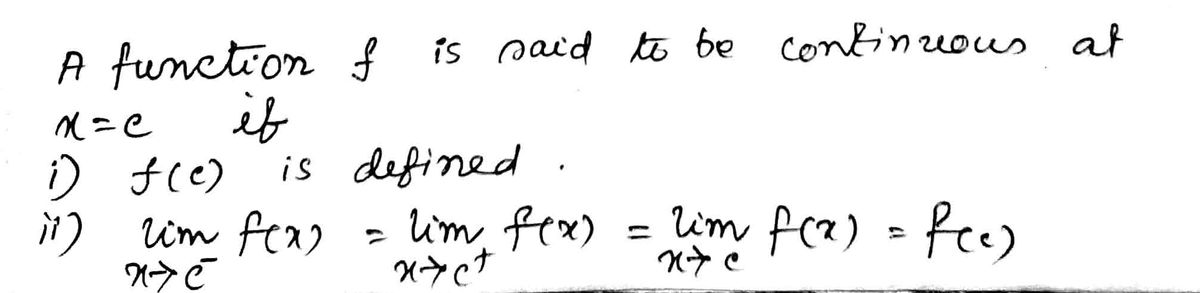 A function f is said to be continuous at
x=c if
i) f(c) is defined .
ii) lim f(x) = lim f(x) = lim f(x) = f(c)
x→c⁻ x→c⁺ x→c